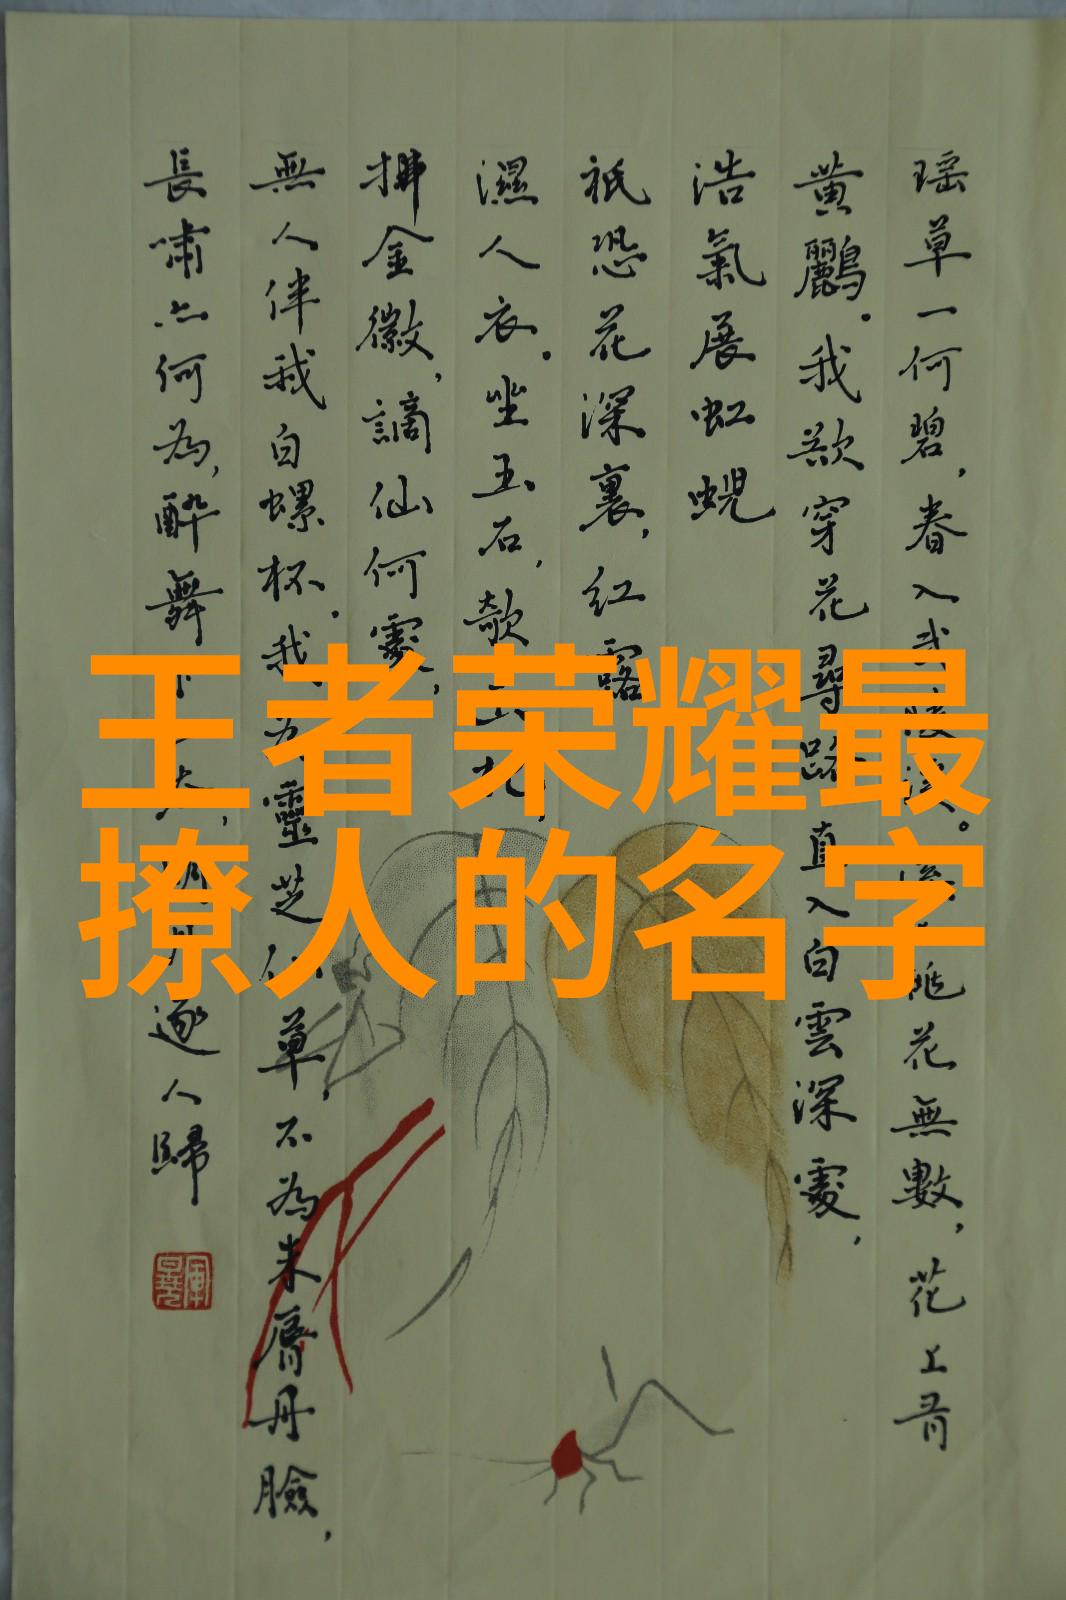 王者荣耀最
撩人的名字
瑶草一何碧，春入武陵溪。溪上桃花無數，花上有
黄鸝。我欲穿花尋路直入白雲深處，
浩氣展虹蜺
祇恐花深裏，紅露
濕人衣。坐玉石，欹玉枕，
拂金徽，謫仙何處，
無人伴我白螺杯。我為靈芝仙草，不為朱脣丹臉，
長嘯亦何為，醉舞下山去，明月逐人歸